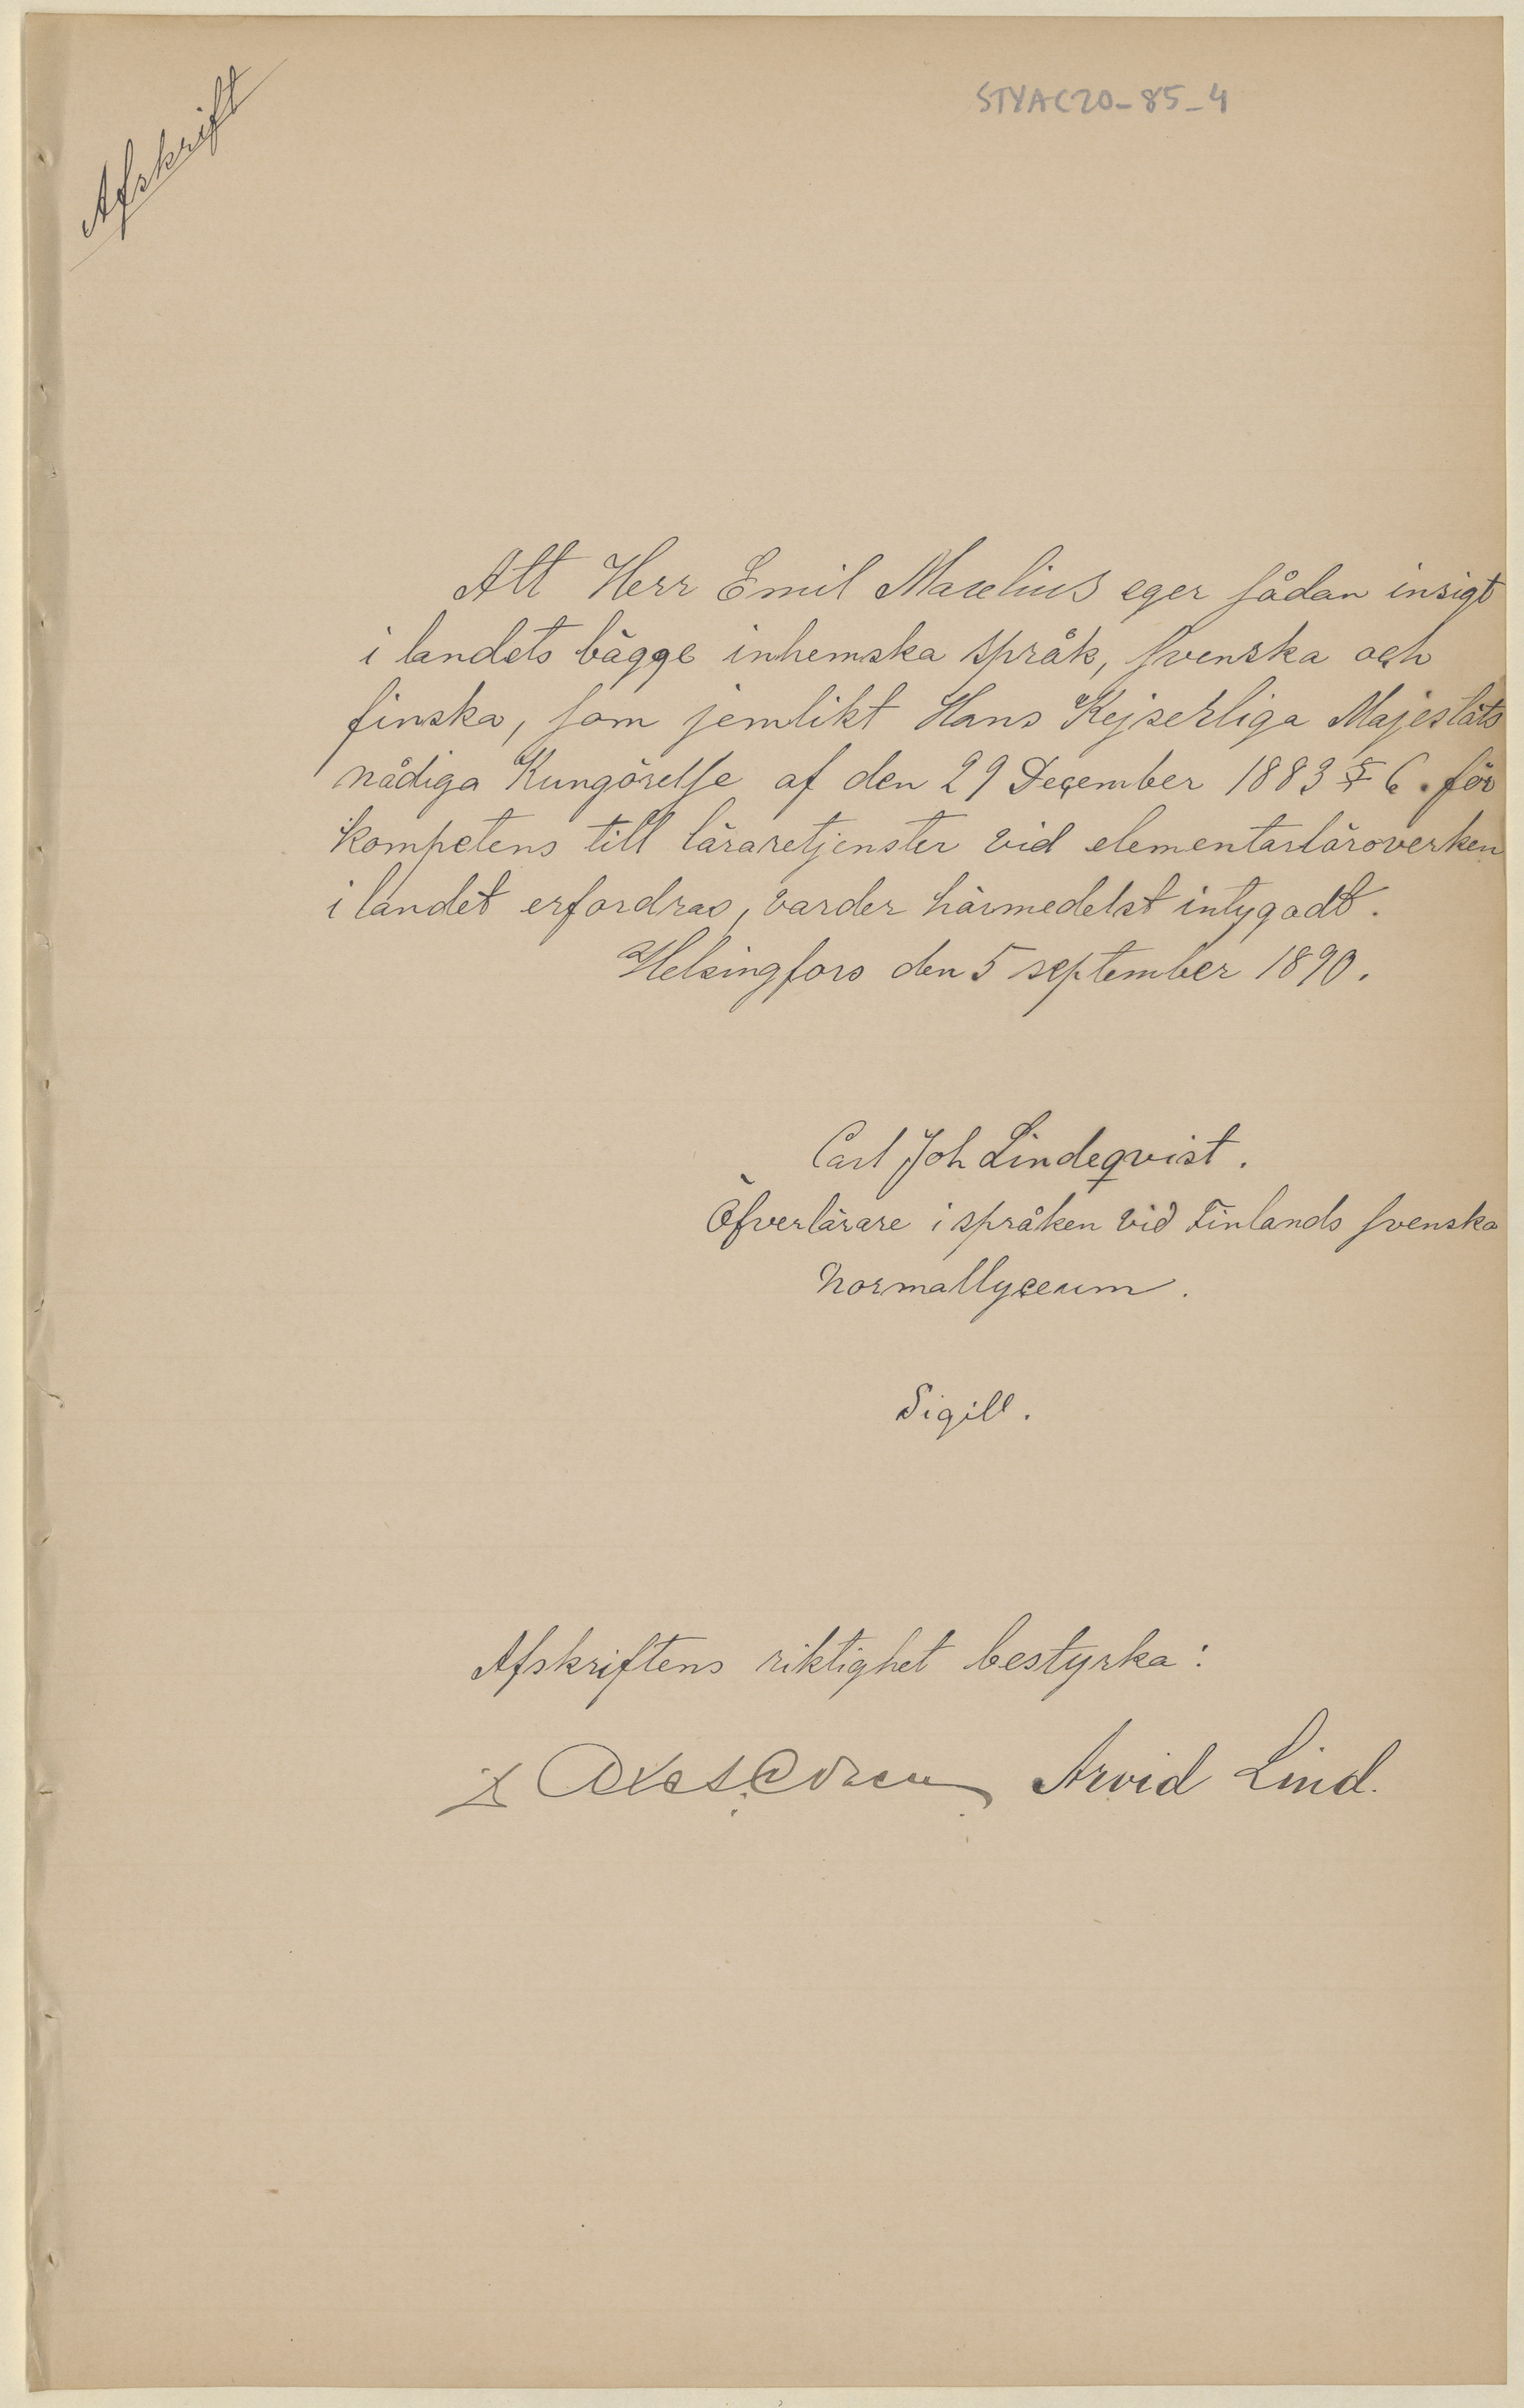 Afskrift
STYAC20-85-4
Att Herr Emil Maxelius eger sådan insigt
i landets bägge inhemska språk, svenska och
finska, som jemlikt Hans Kejserliga Majestäts
nådiga Kungörelse af den 29 December 1883 § 6. för
kompetens till läraretjenster vid elementarläroverken
i landet erfordras, varder härmedelst intygadt.
Helsingfors den 5 september 1890.
Carl Joh Lindeqvist.
Öfverlärare i språken vid Finlands svenska
Normallyceum.
Sigill.
Afskriftens riktighet bestyrka:
Arvid Lind.